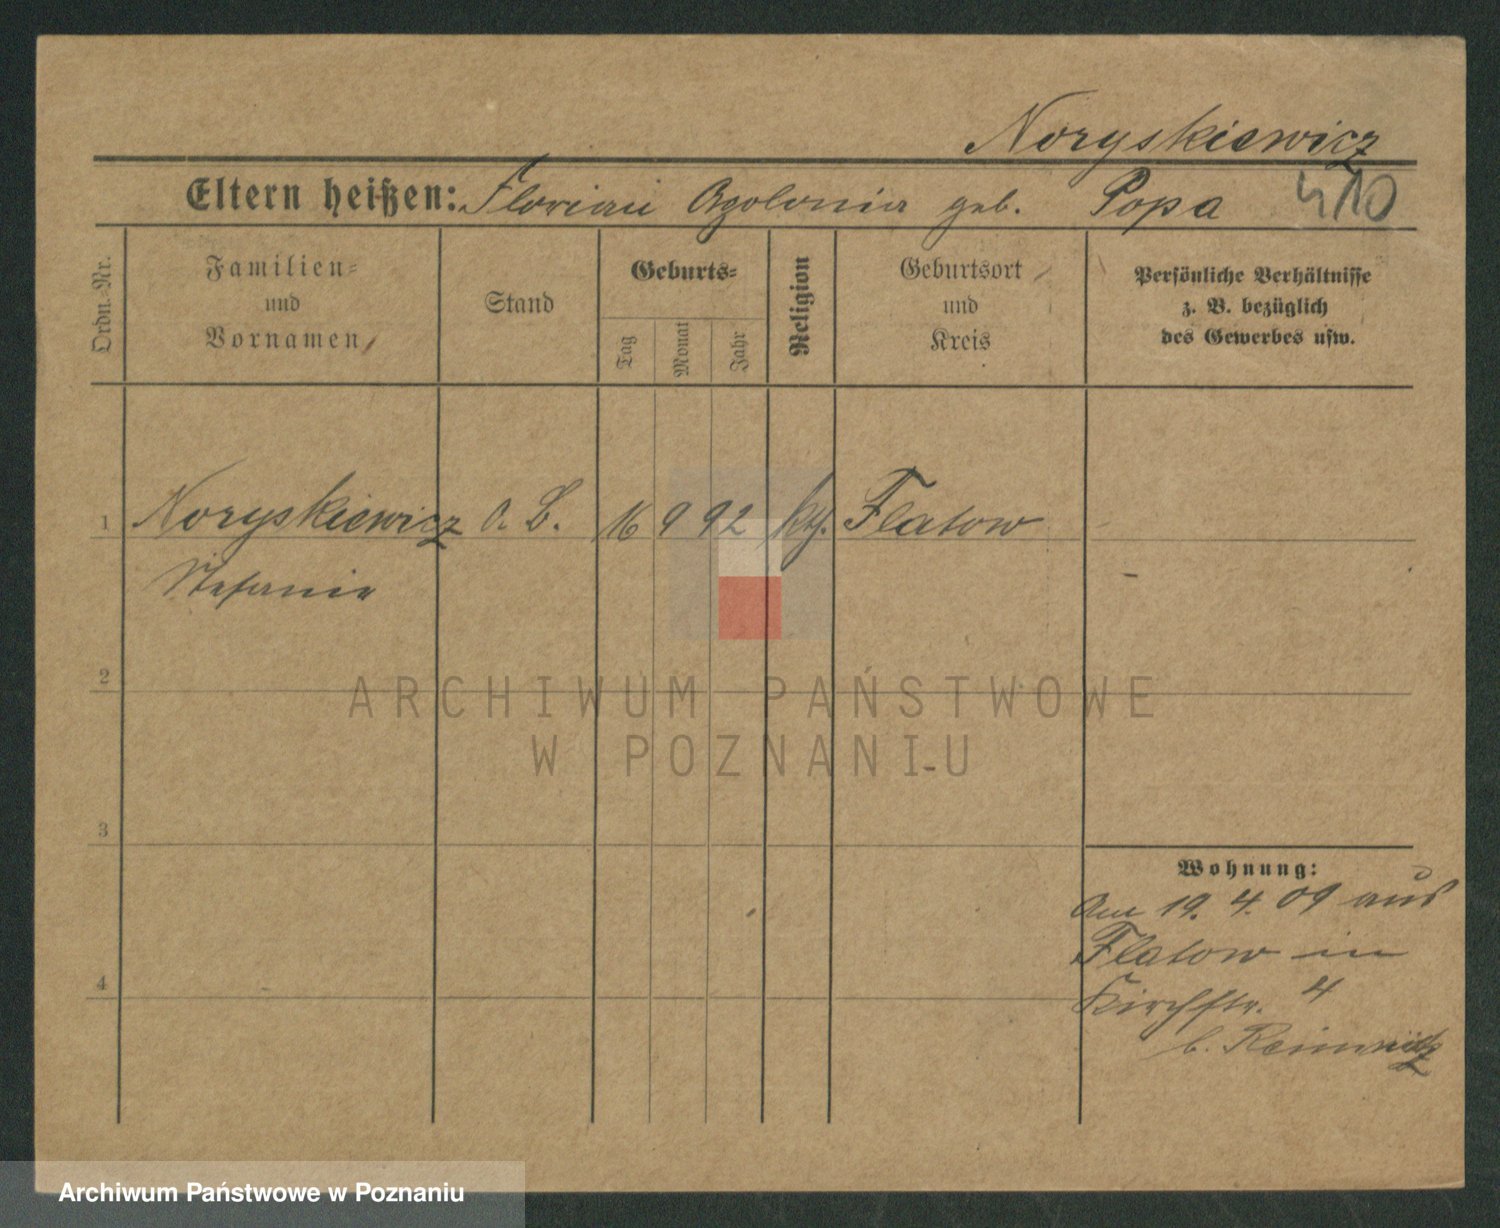 Noryskiewicz
Eltern heißen: Florian Apolonia geb. Popa
410
Ordn.-Nr.
Familien-
und
Vornamen
Stand
Geburts-
Tag
Monat
Jahr
Religion
Geburtsort
und
Kreis
Persönliche Verhältnisse
z. B. bezüglich
des Gewerbes usw.
1 Noryskiewicz o. B. 16 9 92 kth. Flatow
Stefania
2
3
4
Wohnung:
Am 19. 4. 09 aus
Flatow in
Kirchstr. 4
b.
ARCHIWUM PAŃSTWOWE
W POZNANIU
Archiwum Państwowe w Poznaniu